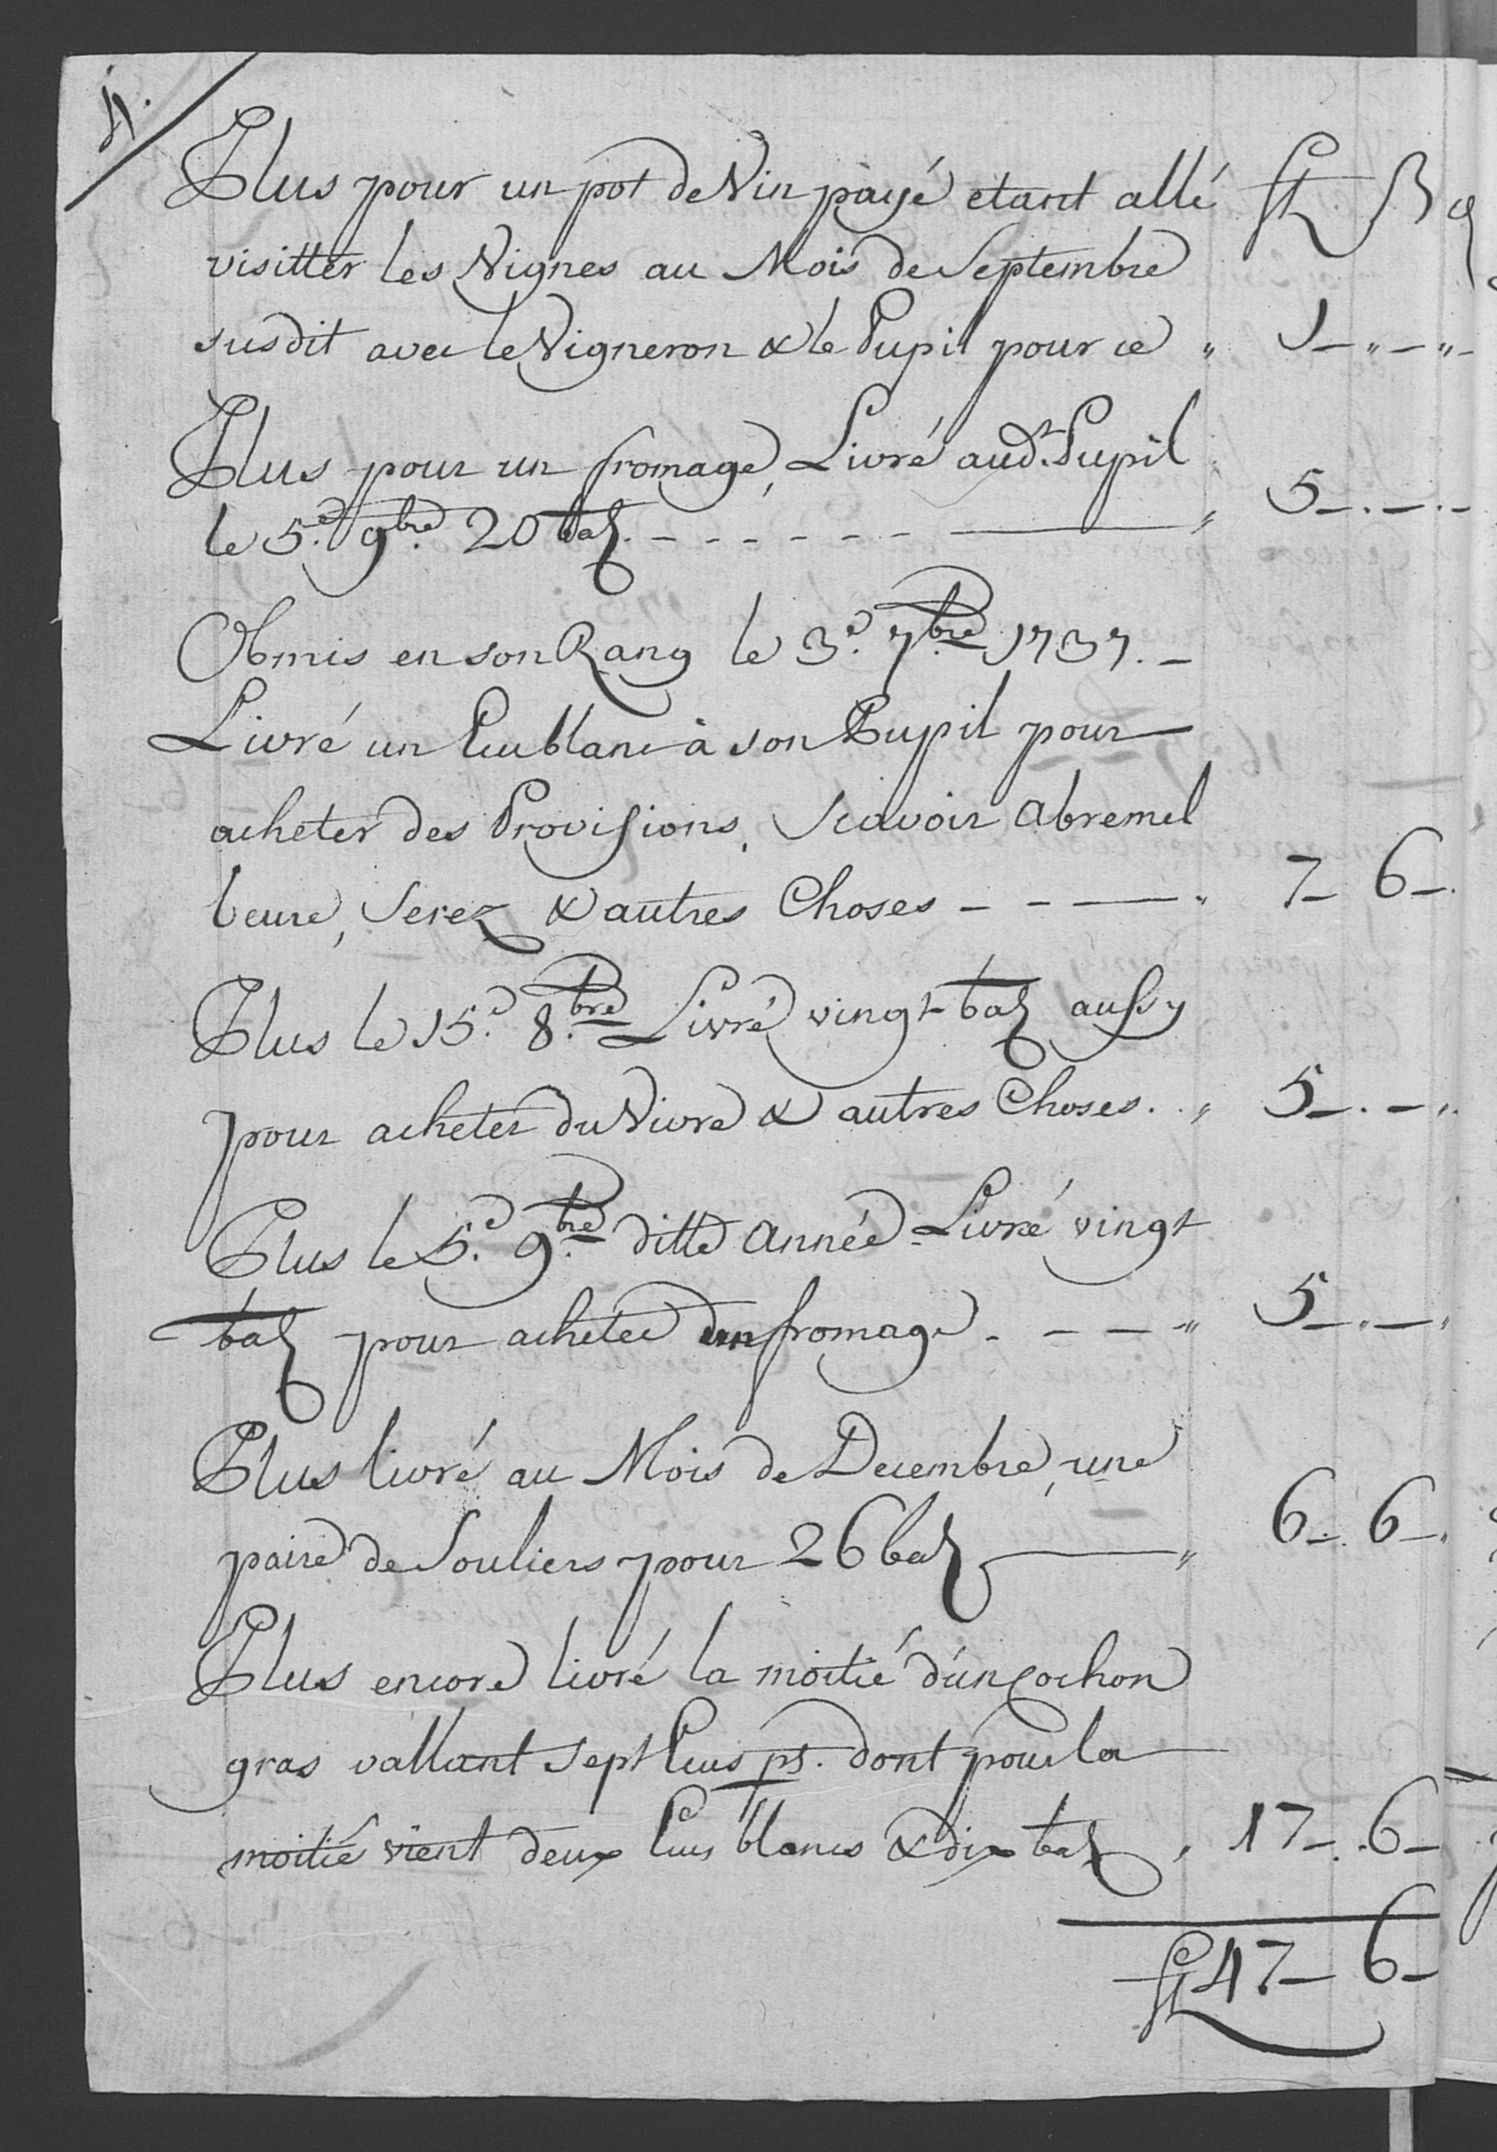 4.
Plus pour un pot de Vin payé etant allé ft ß ₰
visitter les Vignes au Mois de Septembre
susdit avec le Vigneron & le Pupil pour ce „ 1-„-„-
Plus pour un fromage, Livré aud.t Pupil
le 5.e 9.bre 20 baz. - - - - - - „ 5-.-.-
Obmis en son Rang le 3.e 7.bre 1737. -
Livré un Ecu blanc à son Pupil pour
acheter des Provisions, Scavoir
beure, Serez & autres Choses - - - „ 7- 6-.
Plus le 15.e 8.bre Livré vingt baz aussy
pour acheter du Vivre & autres Choses. . „ 5-.-„.
Plus le 5.e 9.bre ditte Année Livré vingt
baz pour achetér un fromage. - - - „ 5-.-.
Plus livré au Mois de Decembre, une
paire de Souliers pour 26 baz - „ 6- 6-.
Plus encore livré la moitié d'un cochon
gras vallant sept Ecus ps. dont pour la
moitié vient deux Ecus blancs & dix baz „ 17-. 6-
ft 47- 6-